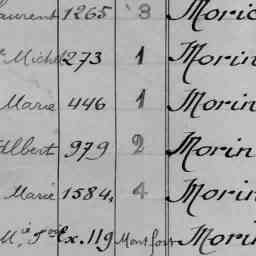 aurent 1265 3 Moric
Michel 273 1 Morin
Marie 446 1 Morin
Albert 979 2 Morin
Marie 1584 4 Morin
Mie Ex. 119 Montfort Morin